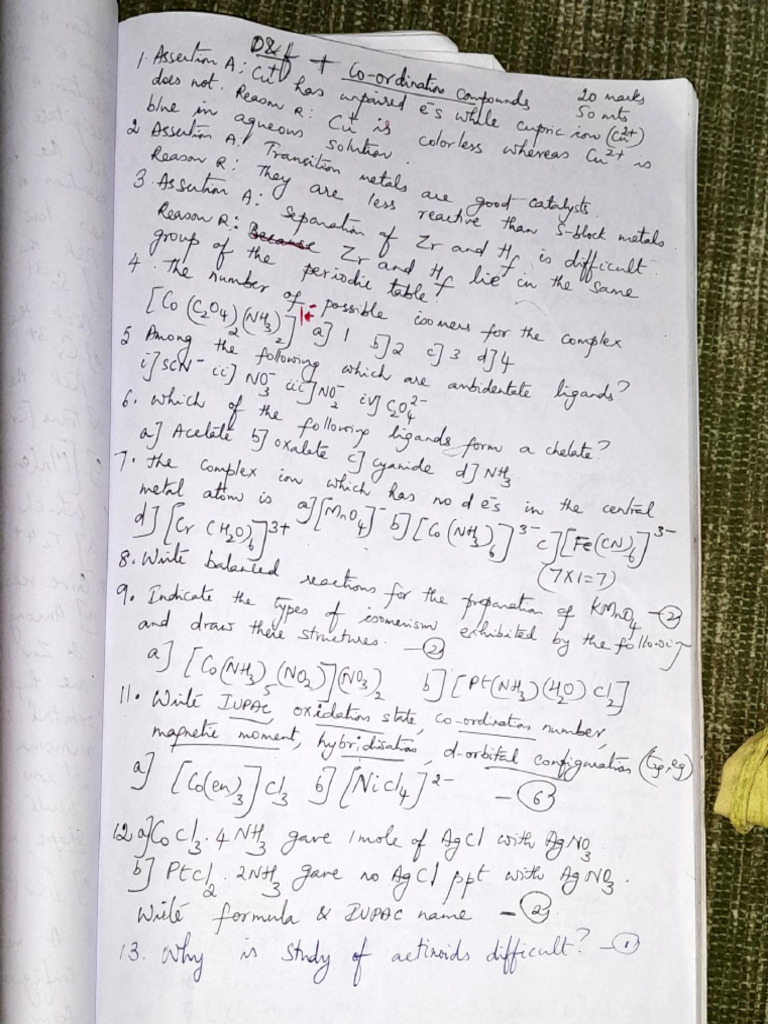 D&f + Co-ordination Compounds 20 marks
50 mts
1. Assertion A: Cu⁺ has unpaired e⁻s while cupric ion (Cu²⁺)
does not. Reason R: Cu⁺ is colorless whereas Cu²⁺ is
blue in aqueous solution.
2 Assertion A: Transition metals are good catalysts.
Reason R: They are less reactive than S-block metals.
3. Assertion A: Separation of Zr and Hf is difficult.
Reason R: Because Zr and Hf lie in the same
group of the periodic table.
4. The number of possible isomers for the complex
[Co(C₂O₄)₂(NH₃)₂]⁻ a] 1 b] 2 c] 3 d] 4
5 Among the following which are ambidentate ligands?
i] SCN⁻ ii] NO₃⁻ iii] NO₂⁻ iv] C₂O₄²⁻
6. Which of the following ligands form a chelate?
a] Acetate b] oxalate c] cyanide d] NH₃
7. The complex ion which has no d e⁻s in the central
metal atom is a] [MnO₄]⁻ b] [Co(NH₃)₆]³⁻ c] [Fe(CN)₆]³⁻
d] [Cr(H₂O)₆]³⁺
(7x1=7)
8. Write balanced reactions for the preparation of KMnO₄ -②
9. Indicate the types of isomerism exhibited by the following
and draw these structures. -②
a] [Co(NH₃)₅(NO₂)](NO₃)₂ b] [Pt(NH₃)(H₂O)Cl₂]
11. Write IUPAC, oxidation state, co-ordination number,
magnetic moment, hybridisation, d-orbital configuration (t₂g, eg)
a] [Co(en)₃]Cl₃ b] [NiCl₄]²⁻ -⑥
12 a] CoCl₃.4NH₃ gave 1mole of AgCl with AgNO₃.
b] PtCl₂.2NH₃ gave no AgCl ppt with AgNO₃.
Write formula & IUPAC name -②
13. Why is study of actinoids difficult? -①